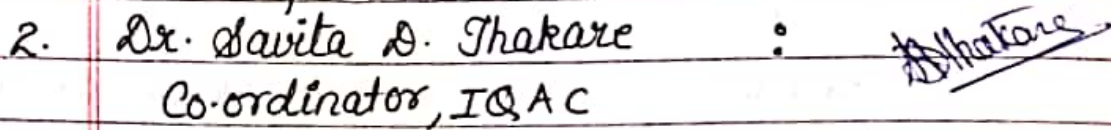 2. Dr. Savita D. Thakare : SDThakare
Co-ordinator, IQAC